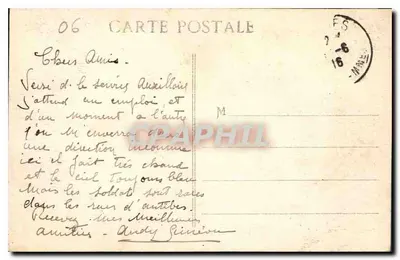 06
CARTE POSTALE
Chers Amis.
Versé d. le service Auxiliaire
J'attend un emploi, et
d'un moment a l'autre
l'on m'enverra dans
une direction inconnue
ici il fait très chaud
et le ciel toujours bleu
Mais les soldats sont rares
dans les rues d'antibes.
Recevez mes meilleures
amitiés. Andy
M
CARPHILA
-6
16